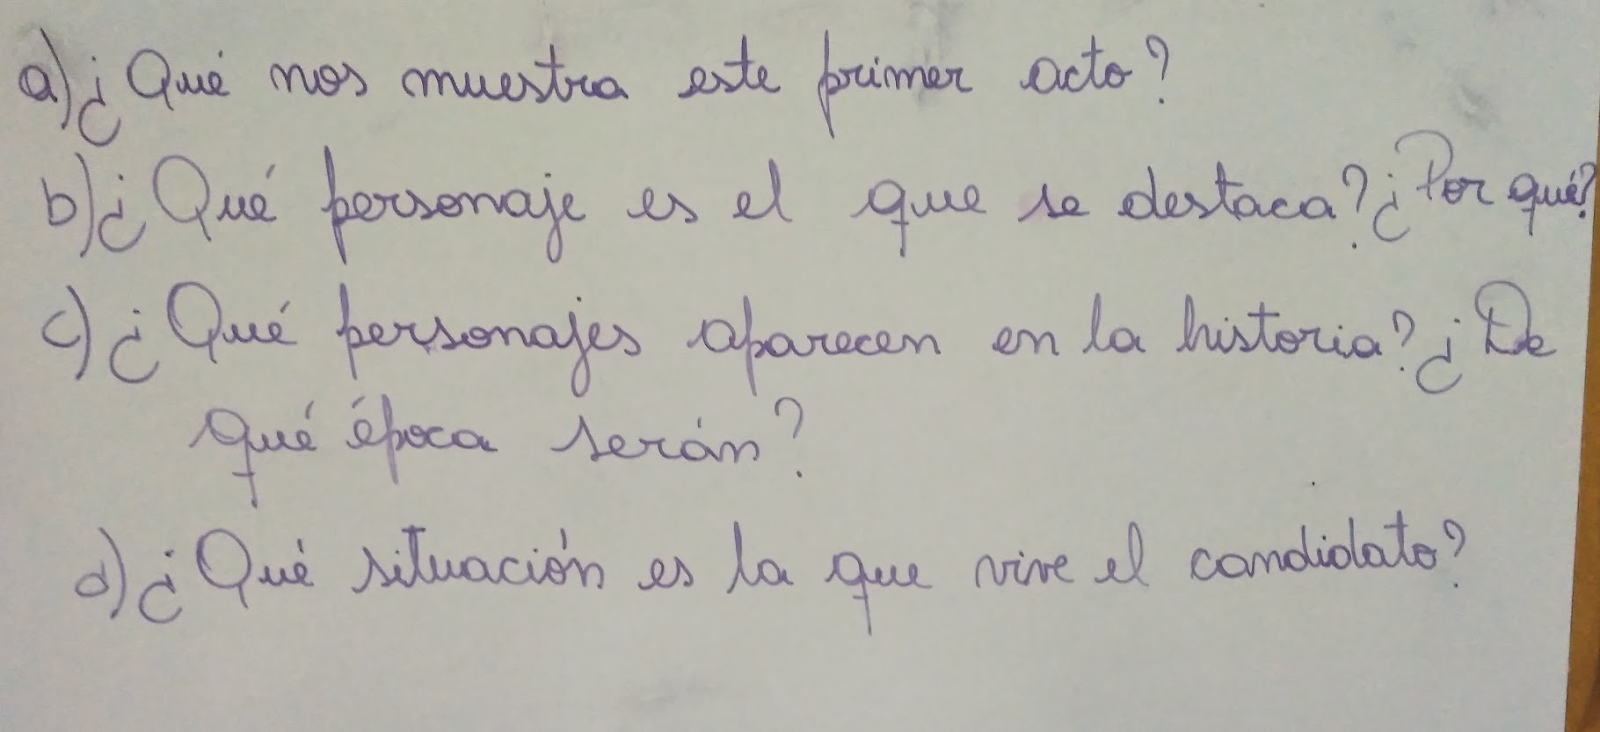 a) ¿Qué nos muestra este primer acto?
b) ¿Qué personaje es el que se destaca? ¿Por qué?
c) ¿Qué personajes aparecen en la historia? ¿De
qué época serán?
d) ¿Qué situación es la que vive el candidato?